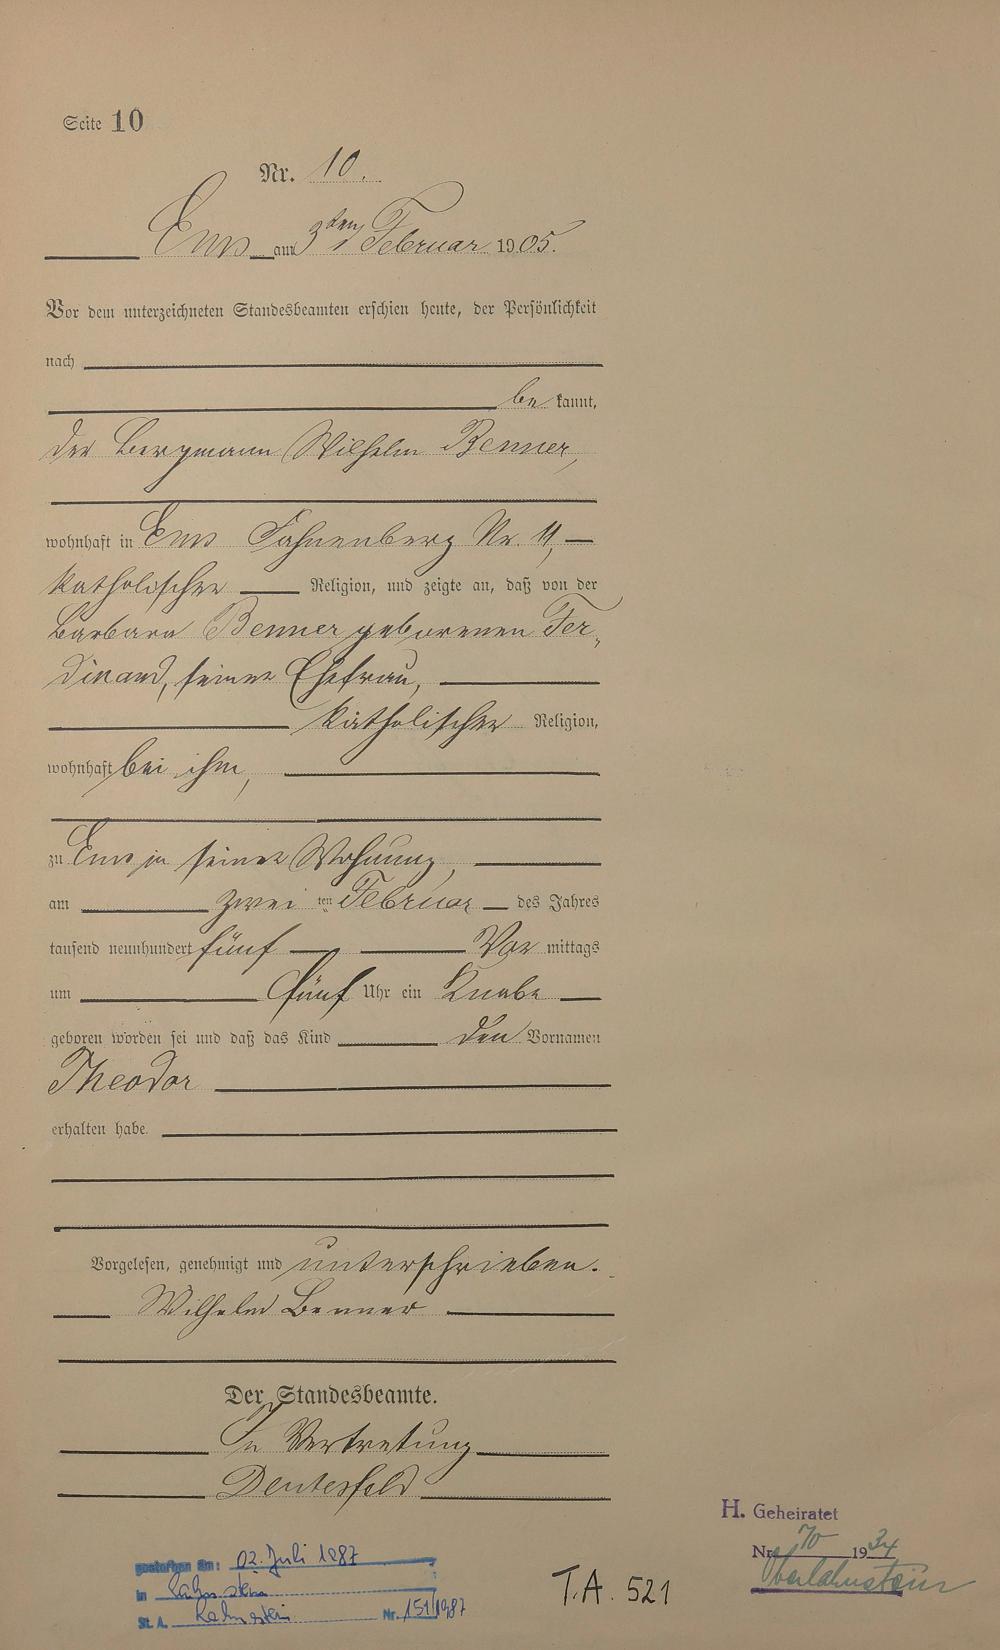 Seite 10
Nr. 10.
Ems am 3ten Februar 1905.
Vor dem unterzeichneten Standesbeamten erschien heute, der Persönlichkeit
nach
be kannt,
der Bergmann Wilhelm Benner,
wohnhaft in Ems Fahnenberg Nr. 11,
katholischer Religion, und zeigte an, daß von der
Barbara Benner geborenen Fer-
dinand, seiner Ehefrau,
katholischer Religion,
wohnhaft bei ihm,
zu Ems in seiner Wohnung,
am zwei ten Februar des Jahres
tausend neunhundert fünf Vor mittags
um fünf Uhr ein Knabe
geboren worden sei und daß das Kind den Vornamen
Theodor
erhalten habe.
Vorgelesen, genehmigt und unterschrieben.
Wilhelm Benner
Der Standesbeamte.
In Vertretung
Deutesfeld
H. Geheiratet
Nr. 70 1934
Oberlahnstein
gestorben am: 02. Juli 1987
in Lahnstein
St. A. Lahnstein Nr. 151/1987
T.A. 521